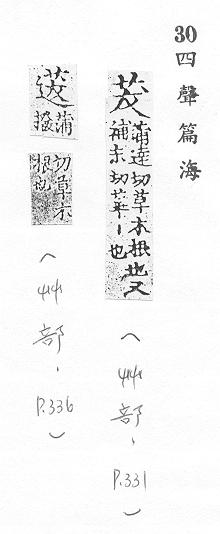 30 四聲篇海
茇
蒲達切草木根也又
補末切蓽丨也
(艸部，P.331)
蒲撥
切草木
根也
(艸部，P.336)